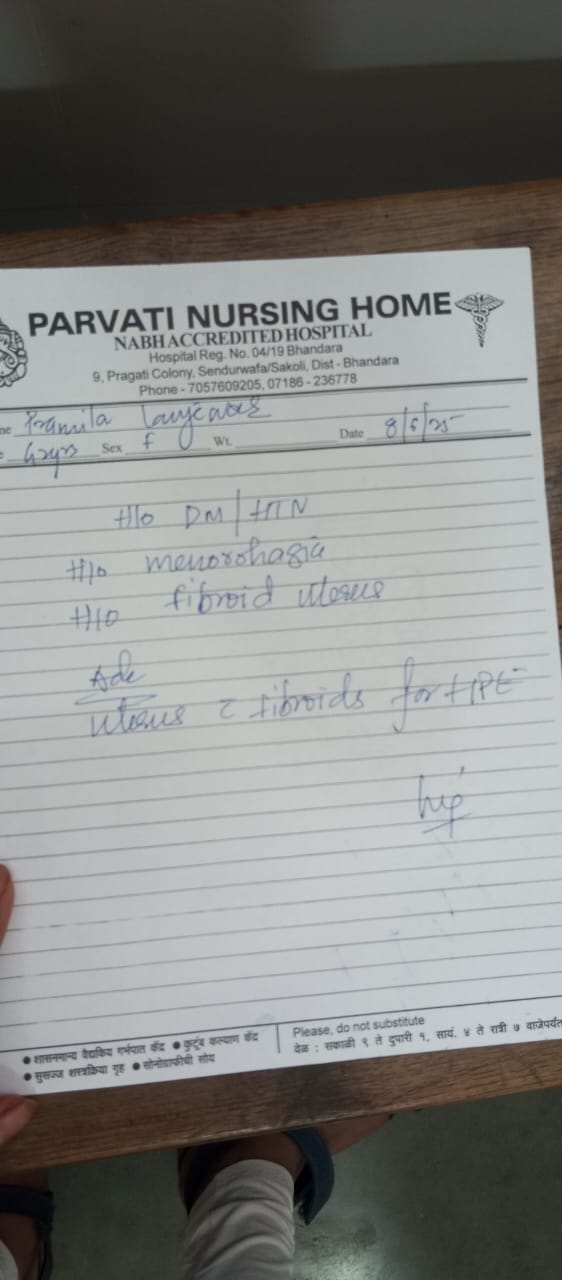 PARVATI NURSING HOME
NABH ACCREDITED HOSPITAL
Hospital Reg. No. 04/19 Bhandara
9, Pragati Colony, Sendurwafa/Sakoli, Dist - Bhandara
Phone - 7057609205, 07186 - 236778
me Pramila
Sex f Wt. Date 8/5/25
H/o DM/HTN
H/o menorohagia
H/o fibroid uterus
Adv
uterus c fibroids for HPE
● शासनमान्य वैद्यकिय गर्भपात केंद्र ● कुटूंब कल्याण केंद्र
● सुसज्ज शस्त्रक्रिया गृह ● सोनोग्राफीची सोय
Please, do not substitute
वेळ : सकाळी ९ ते दुपारी १, सायं. ४ ते रात्री ७ वाजेपर्यंत